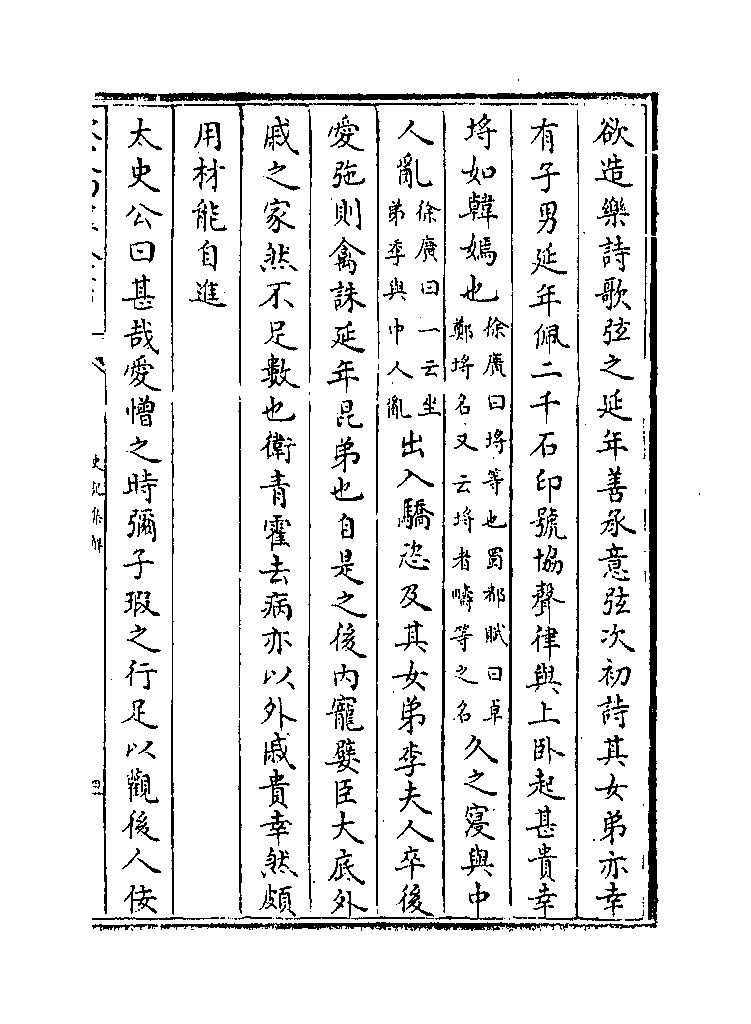 欲造樂詩歌弦之延年善承意弦次初詩其女弟亦幸
有子男延年佩二千石印號協聲律與上臥起甚貴幸
埓如韓嫣也徐廣曰埓等也蜀都賦曰卓鄭埓名又云埓者疇等之名久之寖與中
人亂徐廣曰一云坐弟季與中人亂出入驕恣及其女弟李夫人卒後
愛弛則禽誅延年昆弟也自是之後内寵嬖臣大底外
戚之家然不足數也衛青霍去病亦以外戚貴幸然頗
用材能自進
太史公曰甚哉愛憎之時彌子瑕之行足以觀後人佞
史記集解
四